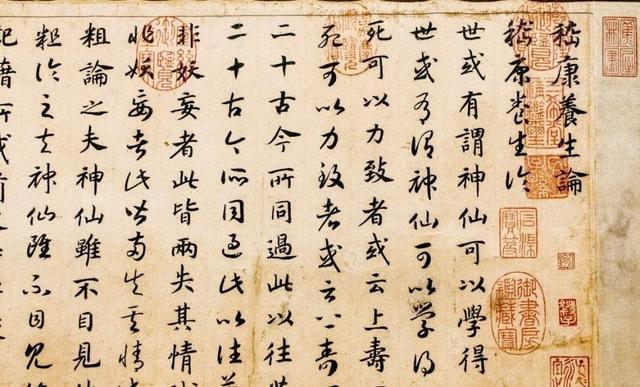 嵇康養生論
嵇康養生論
世或有謂神仙可以學得
世或有謂神仙可以學得
死可以力致者或云上壽
死可以力致者或云上壽
二十古今所同過此以往
二十古今所同過此以往
非妖妄者此皆兩失其情
非妖妄者此皆兩失其情
粗論之夫神仙雖不目見
粗論之夫神仙雖不目見
記籍所載前
御書房鑑藏寶